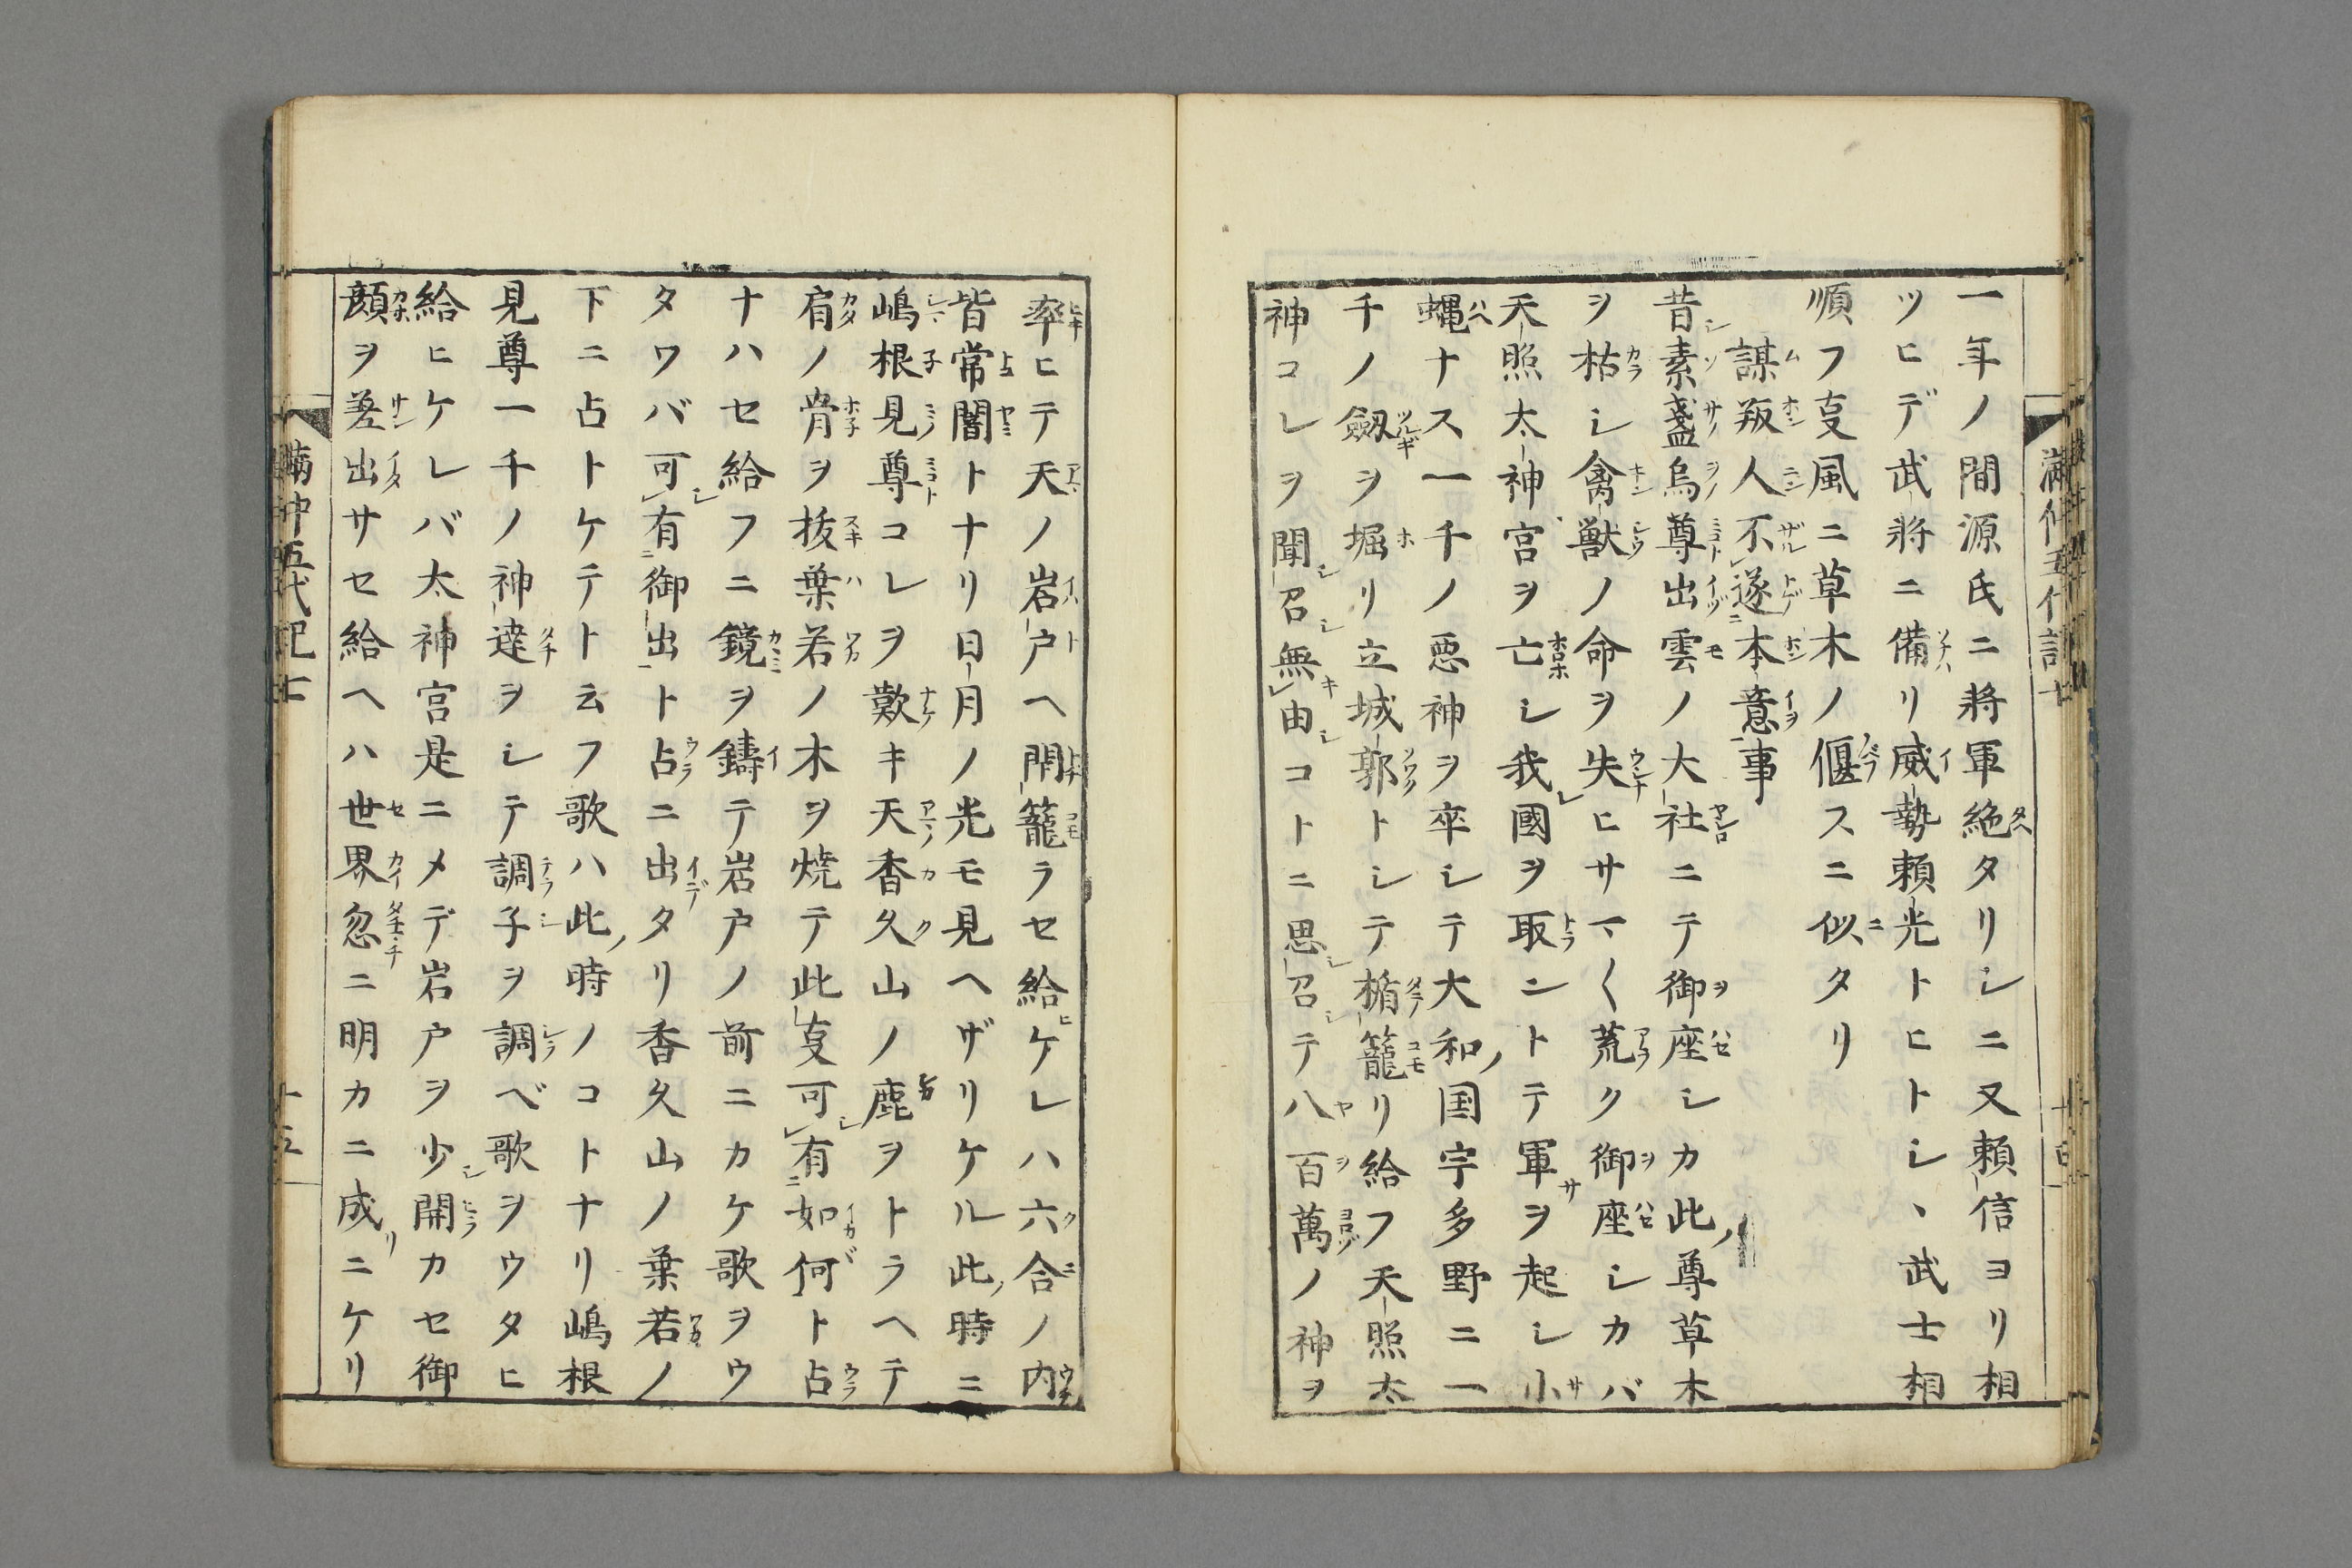 一年ノ間源氏ニ將軍絶タリシニ又賴信ヨリ相
ツヒデ武將ニ備リ威勢賴光トヒトシ、武士相
順フ㕝風ニ草木ノ偃スニ似タリ
謀叛人不遂本意事
昔素盞烏尊出雲ノ大社ニテ御座シカ此尊草木
ヲ枯シ禽獣ノ命ヲ失ヒサマ〱荒ク御座シカバ
天照太神宮ヲ亡シ我國ヲ取ントテ軍ヲ起シ小
蝿ナス一千ノ悪神ヲ卒シテ大和国宇多野ニ一
千ノ劔ヲ堀リ立城郭トシテ楯籠リ給フ天照太
神コレヲ聞召無由コトニ思召テ八百萬ノ神ヲ
率ヒテ天ノ岩戸ヘ閇籠ラセ給ケレハ六合ノ内
皆常闇トナリ日月ノ光モ見ヘザリケル此時ニ
嶋根見尊コレヲ歎キ天香久山ノ鹿ヲトラヘテ
肩ノ骨ヲ抜葉若ノ木ヲ焼テ此㕝可有如何ト占
ナハセ給フニ鏡ヲ鑄テ岩戸ノ前ニカケ歌ヲウ
タワバ可有御出ト占ニ出タリ香久山ノ葉若ノ
下ニ占トケテト云フ歌ハ此時ノコトナリ嶋根
見尊一千ノ神達ヲシテ調子ヲ調ベ歌ヲウタヒ
給ヒケレバ太神宮是ニメデ岩戸ヲ少開カセ御
顔ヲ差出サセ給ヘハ世界忽ニ明カニ成ニケリ
満仲五代記七
十五